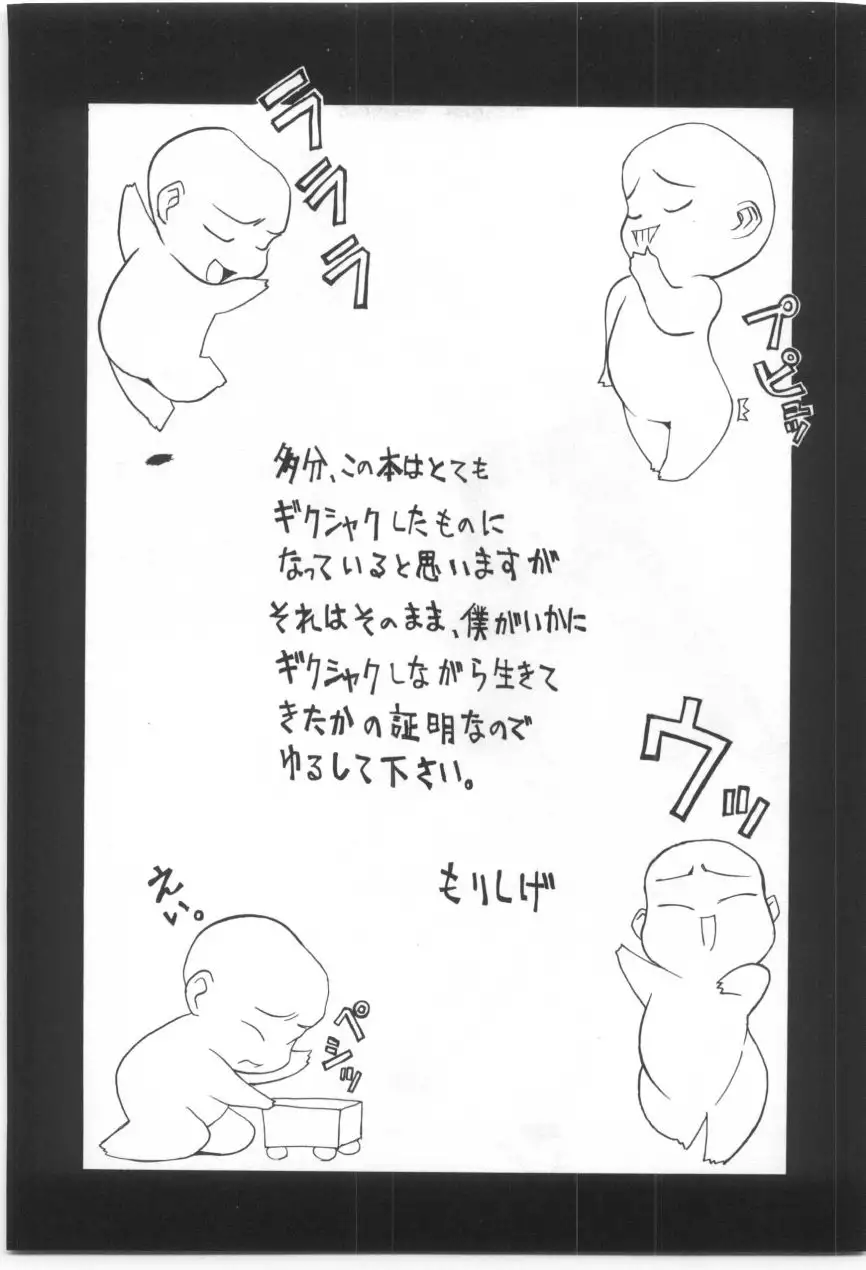 ラララララ
プピッ
多分、この本はとても
ギクシャクしたものに
なっていると思いますが
それはそのまま、僕がいかに
ギクシャクしながら生きて
きたかの証明なので
ゆるして下さい。
もりしげ
ウッ
えい。
ペシッ